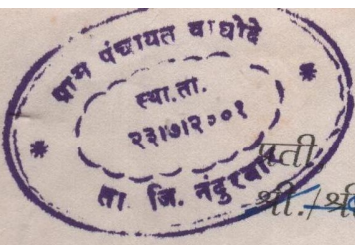 ग्राम पंचायत वाघोदे
स्था.ता.
२३।७।२००१
ता. जि. नंदुरबार
प्रती
श्री./श्री